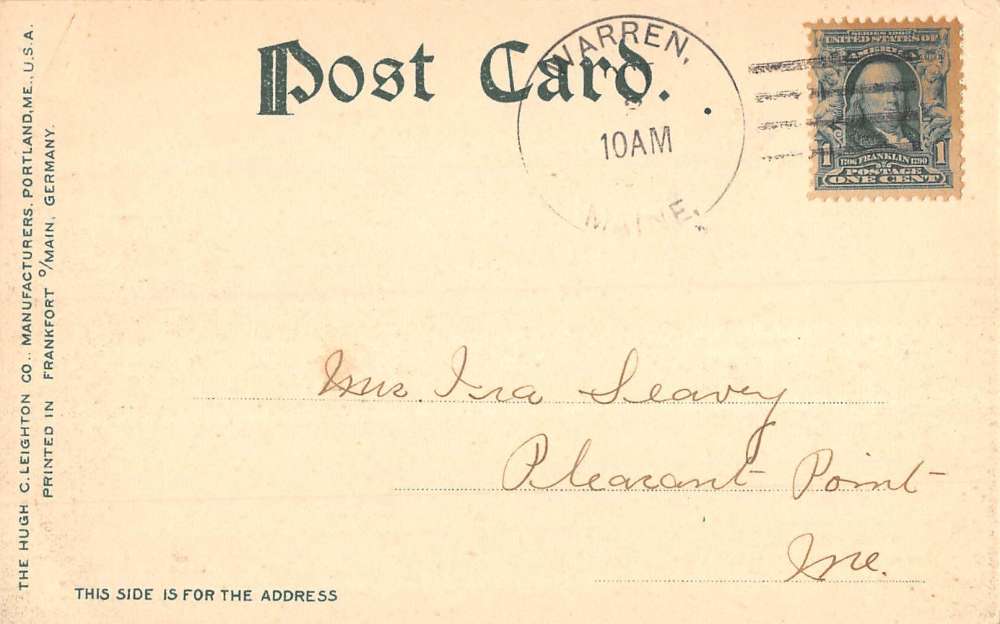 Post Card.
WARREN,
10AM
MAINE.
SERIES 1902
UNITED STATES OF
AMERICA
1 1706 FRANKLIN 1790 1
POSTAGE
ONE CENT
Mrs. Ira Seavey
Pleasant Point
Me.
THIS SIDE IS FOR THE ADDRESS
THE HUGH C. LEIGHTON CO., MANUFACTURERS, PORTLAND, ME., U.S.A.
PRINTED IN FRANKFORT o/MAIN, GERMANY.